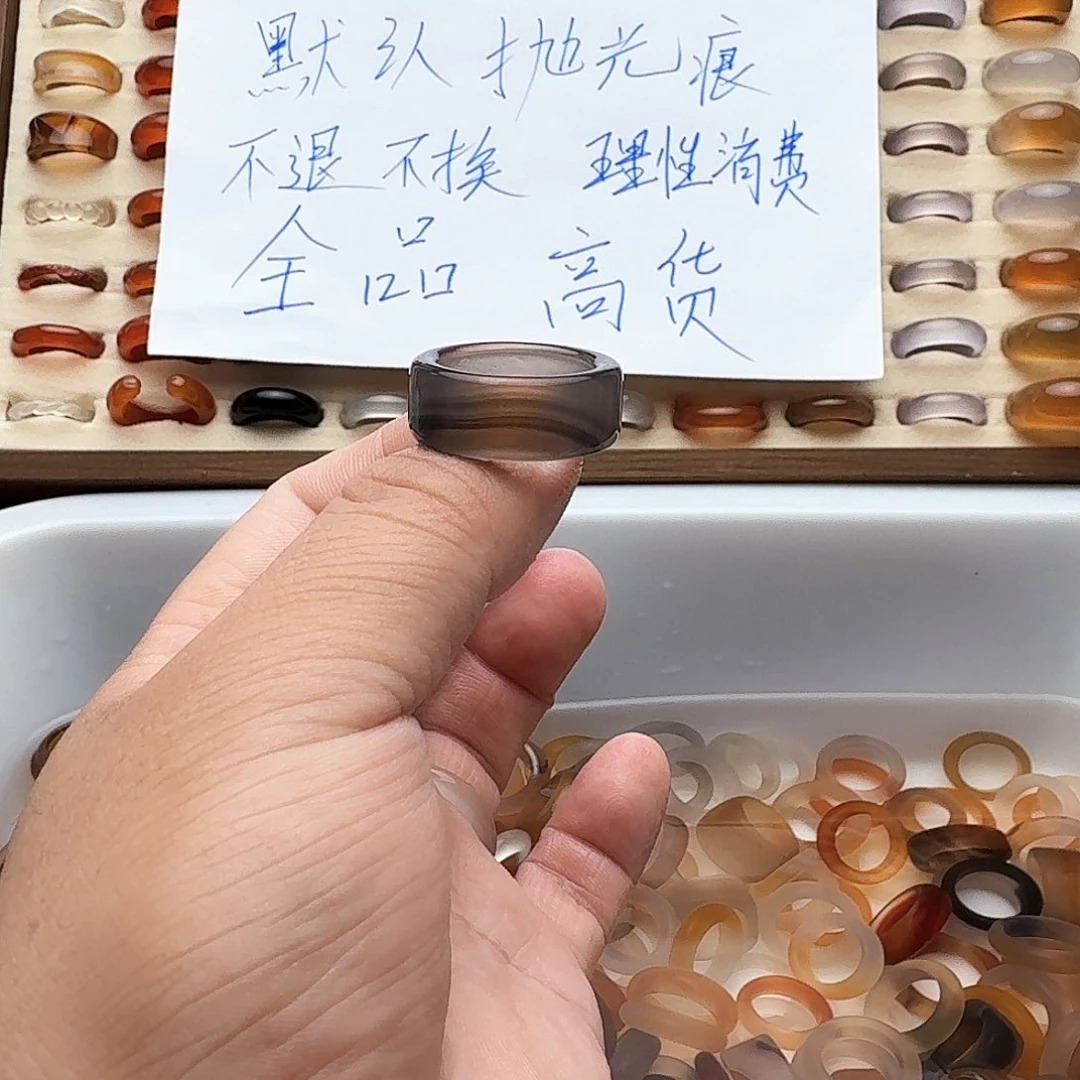 默认抛光痕
不退 不挨 理性消费
全品 高货